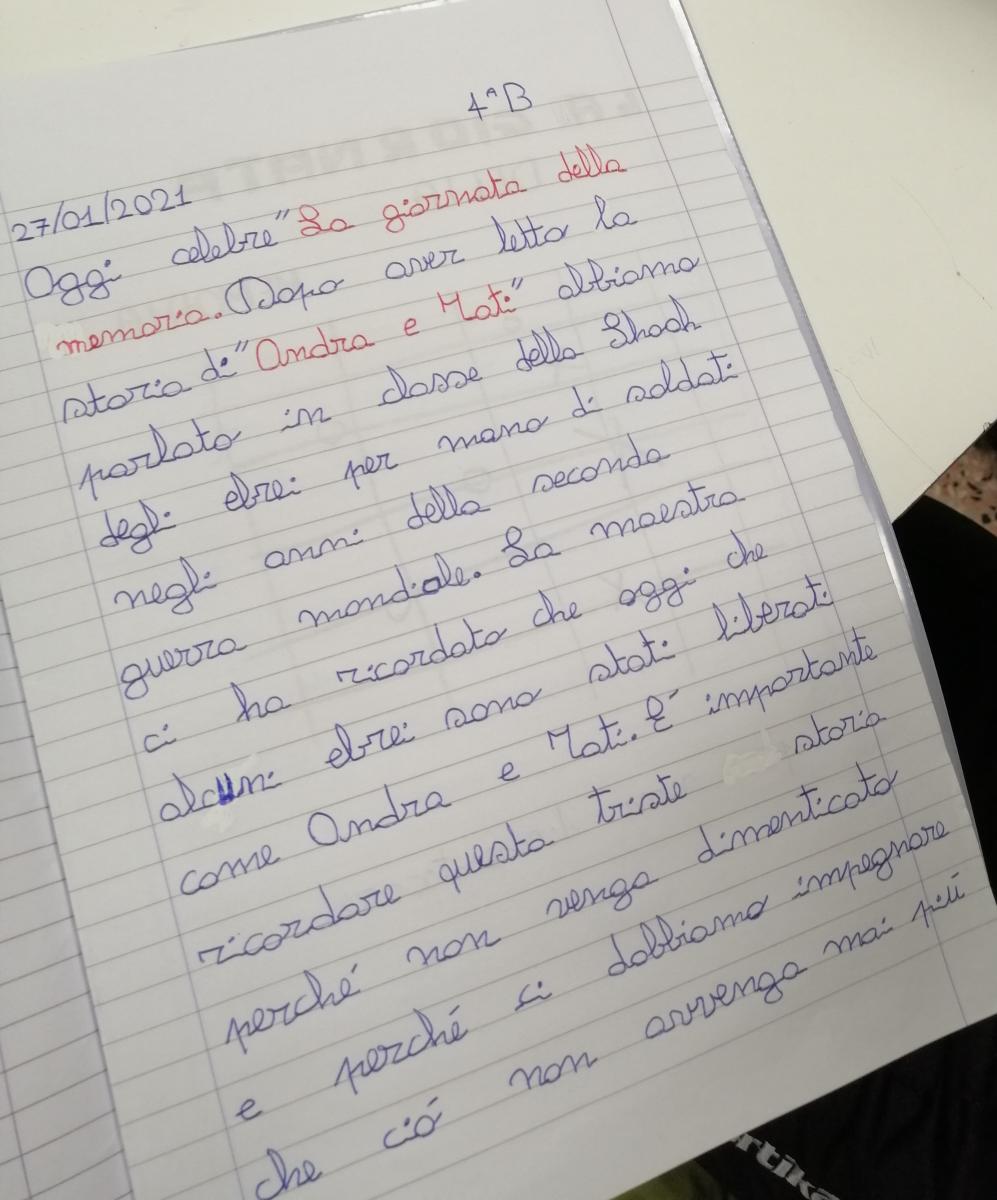 4ªB
27/01/2021
Oggi celebre "La giornata della
memoria. Dopo aver letto la
storia di "Andra e Tati" abbiamo
parlato in classe della Shoah
degli ebrei per mano di soldati
negli anni della seconda
guerra mondiale. La maestra
ci ha ricordato che oggi che
alcuni ebrei sono stati liberati
come Andra e Tati. É importante
ricordare questa triste storia
perché non venga dimenticato
e perché ci dobbiamo impegnare
che ció non avvenga mai piú